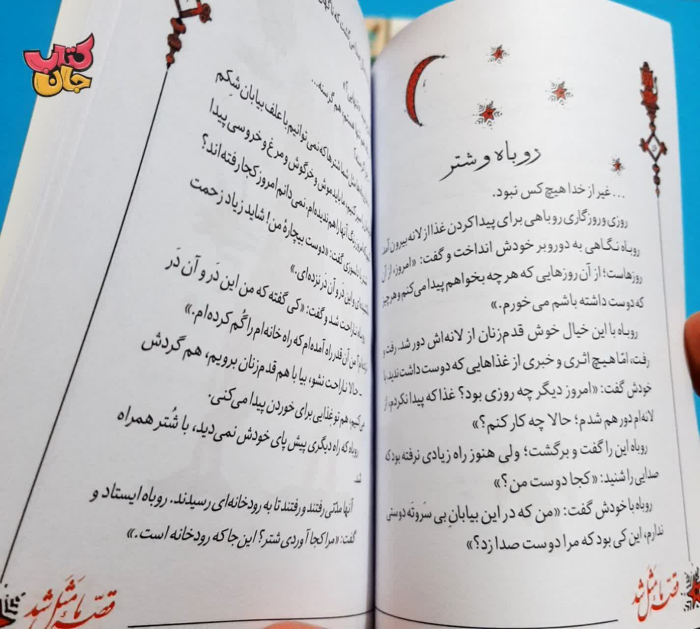 کتاب
جان
روباه و شتر
... غیر از خدا هیچ کس نبود.
روزی و روزگاری روباهی برای پیدا کردن غذا از لانه بیرون آمد
روباه نگاهی به دور و بر خودش انداخت و گفت: «امروز، از آن
روزهاست؛ از آن روزهایی که هر چه بخواهم پیدا می‌کنم و هر چیز
که دوست داشته باشم می‌خورم.»
روباه با این خیال خوش قدم‌زنان از لانه‌اش دور شد. رفت و
رفت، امّا هیچ اثری و خبری از غذاهایی که دوست داشت ندید. با
خودش گفت: «امروز دیگر چه روزی بود؟ غذا که پیدا نکردم، از
لانه‌ام دور هم شدم؛ حالا چه کار کنم؟»
روباه این را گفت و برگشت؛ ولی هنوز راه زیادی نرفته بود که
صدایی را شنید: «کجا دوست من؟»
روباه با خودش گفت: «من که در این بیابانِ بی سَر و ته دوستی
ندارم، این کی بود که مرا دوست صدا زد؟»
قصه ما مثل شد
هم گرسنه...
شما شترها که نمی‌توانیم با علف بیابان شکم
ما باید موش و خرگوش و مرغ و خروسی پیدا
آنها را هم ندیده‌ام. نمی‌دانم امروز کجا رفته‌اند؟
گفت: «دوست بیچارهٔ من! شاید زیاد زحمت
این در و آن در نزده‌ای.»
ناراحت شد و گفت: «کی گفته که من این دَر و آن دَر
من آن قدر راه آمده‌ام که راه خانه‌ام را گم کرده‌ام.»
- حالا ناراحت نشو، بیا با هم قدم‌زنان برویم، هم گردش
می‌کنیم، هم تو غذایی برای خوردن پیدا می‌کنی.
روباه که راه دیگری پیش پای خودش نمی‌دید، با شُتر همراه
شد.
آنها مدتی رفتند و رفتند تا به رودخانه‌ای رسیدند. روباه ایستاد و
گفت: «مرا کجا آوردی شتر؟ این جا که رودخانه است.»
قصه ما مثل شد